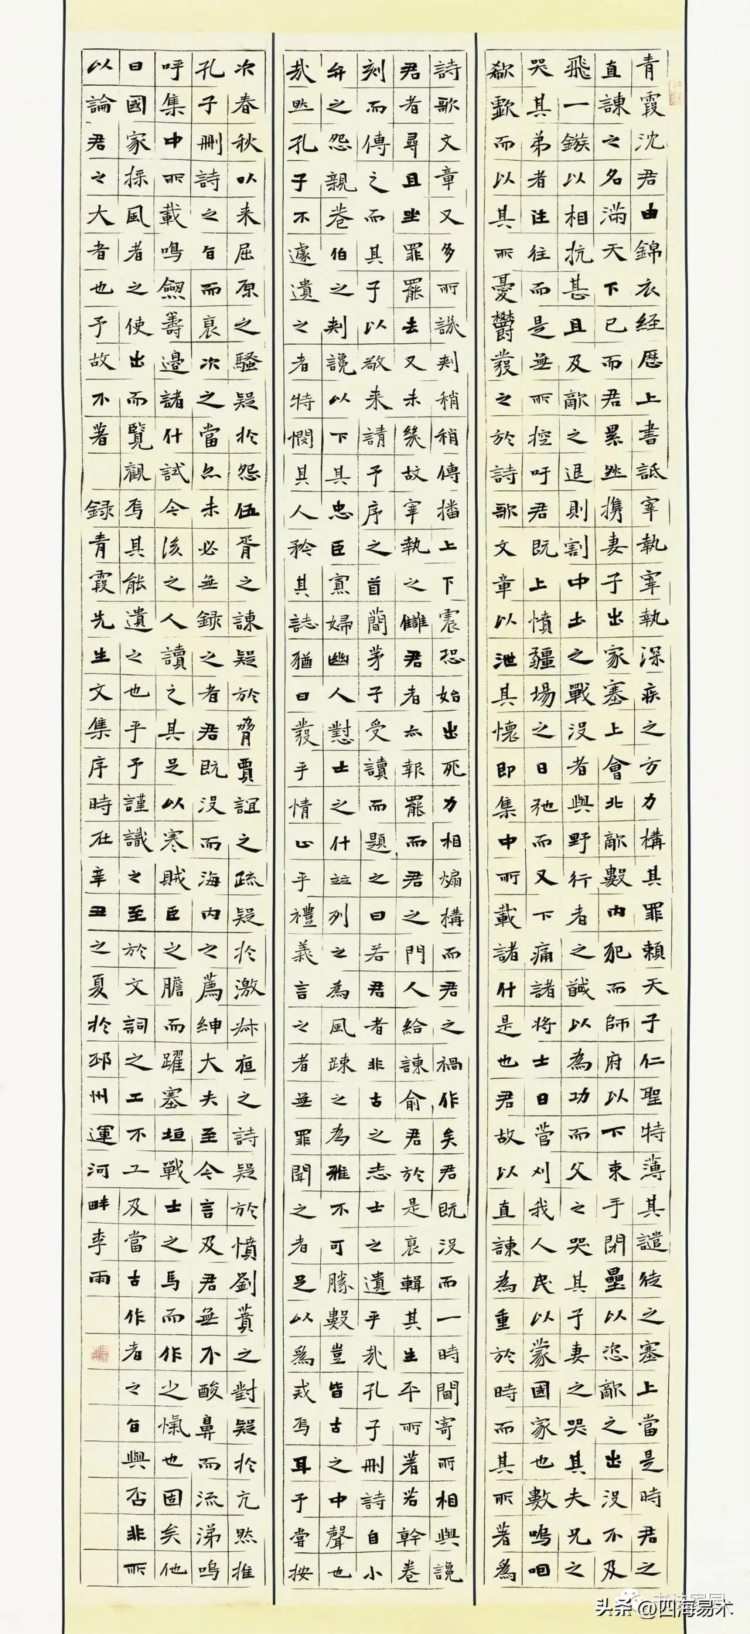 青霞沈君由錦衣經歷上書詆宰執宰執深疾之方力構其罪賴天子仁聖特薄其譴徙之塞上當是時君之
直諫之名滿天下已而君纍然攜妻子出家塞上會北敵數內犯而帥府以下束手閉壘以恣敵之出沒不及
飛一鏃以相抗甚且及敵之退則割中土之戰沒者與野行者之馘以為功而父之哭其子妻之哭其夫兄之
哭其弟者往往而是無所控吁君既上憤疆場之日弛而又下痛諸將士日菅刈我人民以蒙國家也數嗚咽
欷歔而以其所憂鬱發之於詩歌文章以泄其懷即集中所載諸什是也君故以直諫為重於時而其所著為
詩歌文章又多所譏刺稍稍傳播上下震恐始出死力相煽構而君之禍作矣君既沒而一時閫寄所相與讒
君者尋且坐罪罷去又未幾故宰執之讎君者亦報罷而君之門人給諫俞君於是裒輯其生平所著若幹卷
刻而傳之而其子以敬來請予序之首簡茅子受讀而題之曰若君者非古之志士之遺乎哉孔子刪詩自小
弁之怨親巷伯之刺讒以下其忠臣寡婦幽人懟士之什並列之為風疎之為雅不可勝數豈皆古之中聲也
哉然孔子不遽遺之者特憫其人矜其誌猶曰發乎情止乎禮義言之者無罪聞之者足以為戒焉耳予嘗按
次春秋以來屈原之騷疑於怨伍胥之諫疑於脅賈誼之疏疑於激叔夜之詩疑於憤劉蕡之對疑於亢然推
孔子刪詩之旨而裒次之當亦未必無錄之者君既沒而海內之薦紳大夫至今言及君無不酸鼻而流涕嗚
呼集中所載鳴劍籌邊諸什試令後之人讀之其足以寒賊臣之膽而躍塞垣戰士之馬而作之愾也固矣他
日國家採風者之使出而覽觀焉其能遺之也乎予謹識之至於文詞之工不工及當古作者之旨與否非所
以論君之大者也予故不著 錄青霞先生文集序時在辛丑之夏於邳州運河畔李雨
头条@四海易术